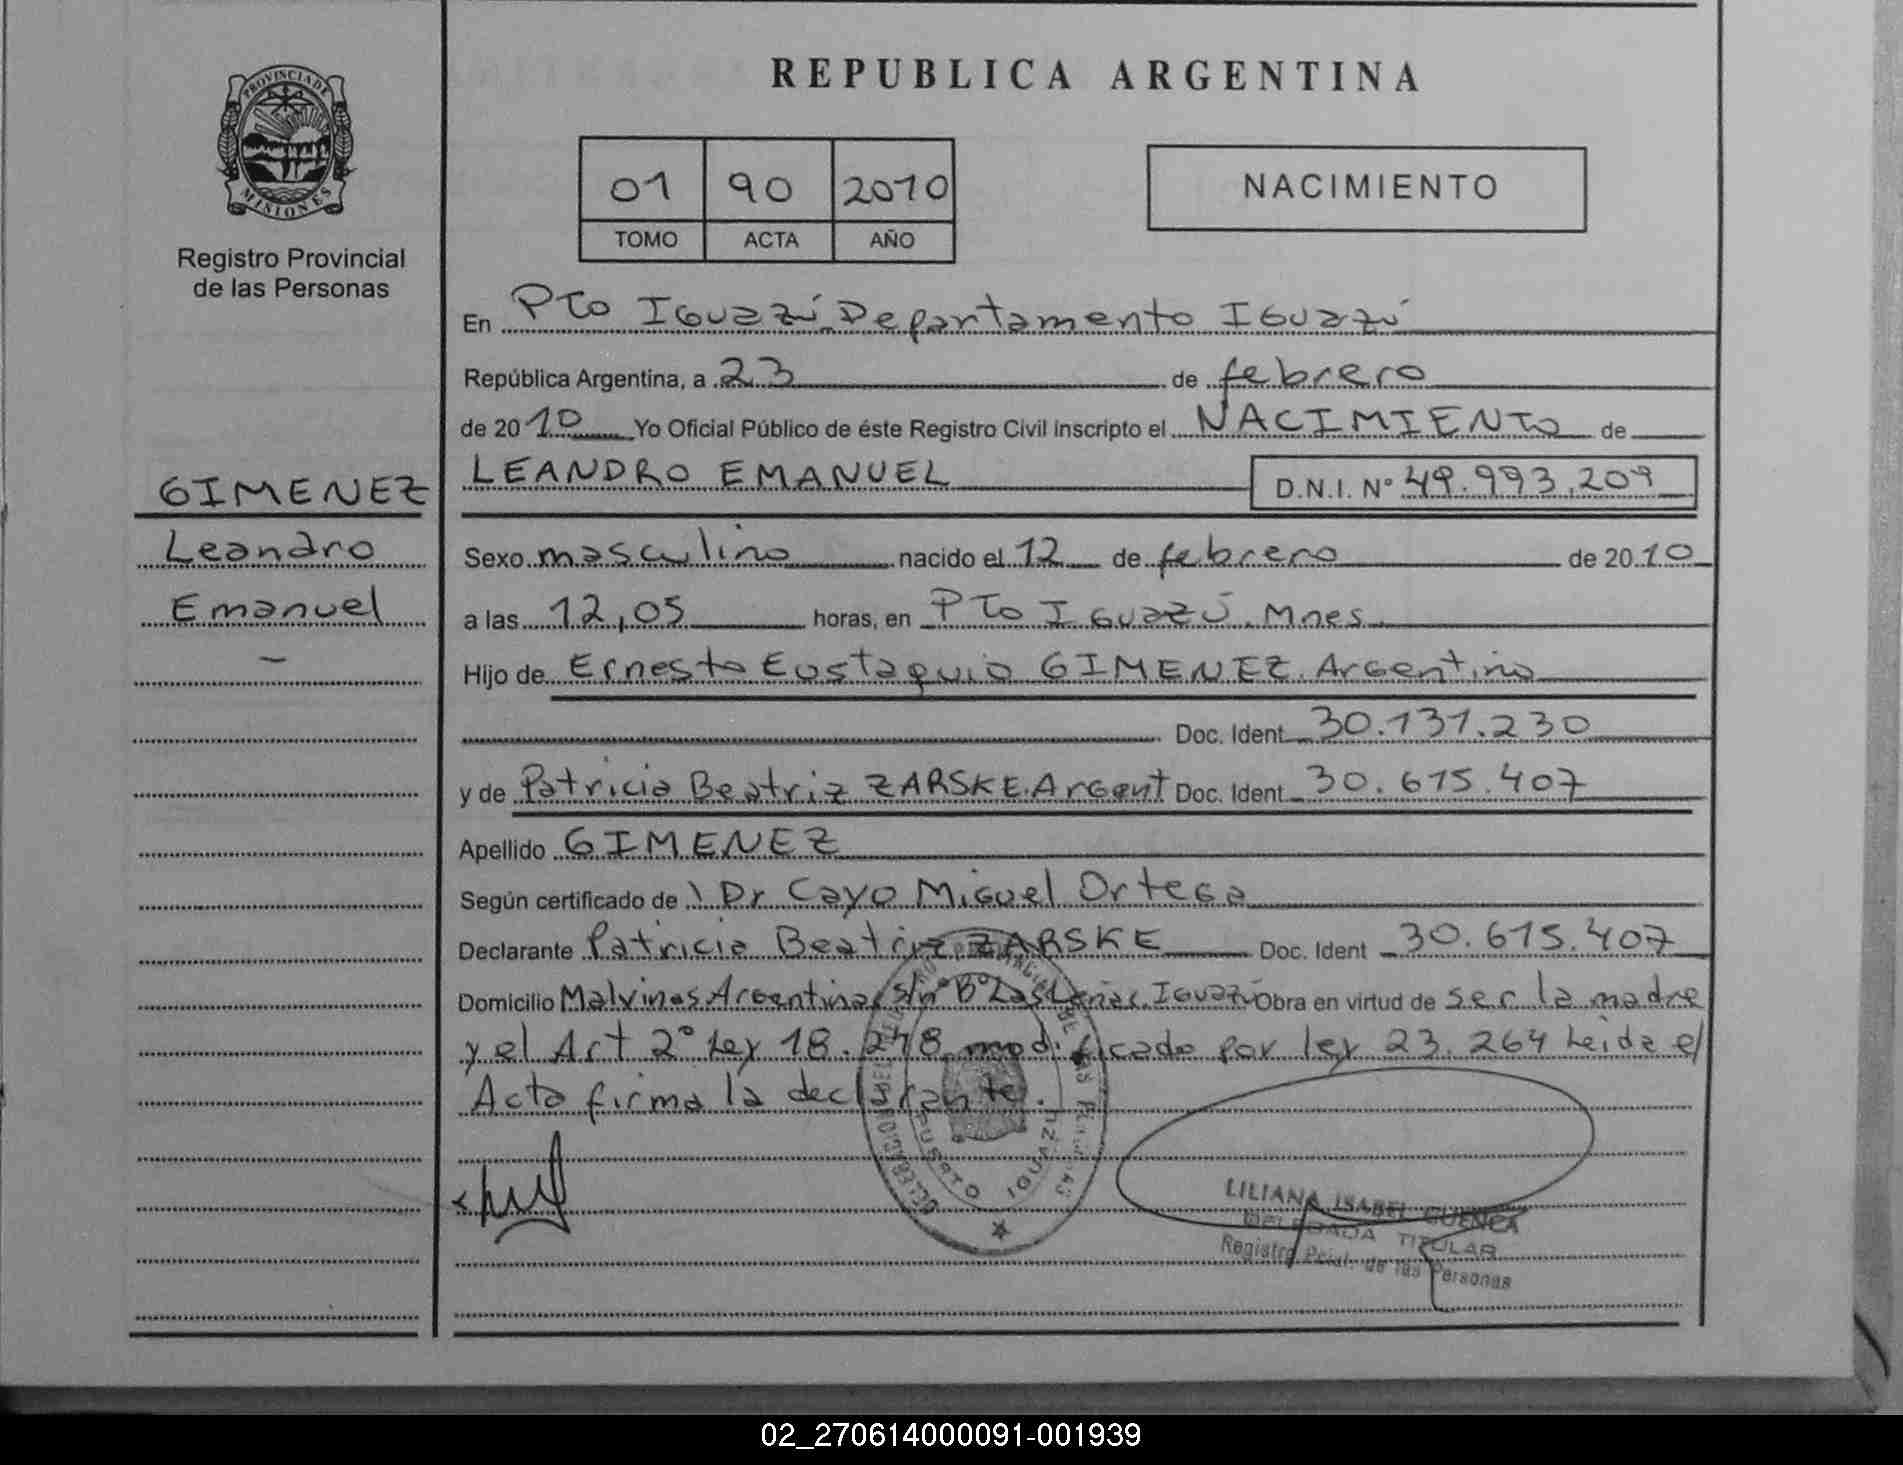 REPUBLICA ARGENTINA
PROVINCIA DE
MISIONES
Registro Provincial
de las Personas
01 90 2010
TOMO ACTA AÑO
NACIMIENTO
En Pto Iguazú Departamento Iguazú
República Argentina, a 23 de febrero
de 2010 Yo Oficial Público de éste Registro Civil Inscripto el NACIMIENTO de
GIMENEZ
LEANDRO EMANUEL D.N.I. Nº 49.993.209
Leandro
Sexo masculino nacido el 12 de febrero de 2010
Emanuel
a las 12,05 horas, en Pto Iguazú. Mnes.
Hijo de Ernesto Eustaquio GIMENEZ. Argentino
Doc. Ident 30.131.230
y de Patricia Beatriz ZARSKE. Argent Doc. Ident 30.615.407
Apellido GIMENEZ
Según certificado de Dr Cayo Miguel Ortega
Declarante Patricia Beatriz ZARSKE Doc. Ident 30.615.407
Domicilio Malvinas Argentinas s/nº Bº Las Leñas, Iguazú Obra en virtud de ser la madre
y el Art 2º Ley 18.248 modificado por ley 23.264 Leida el
Acta firma la declarante.
PUERTO IGUAZU
LILIANA ISABEL CUENCA
DELEGADA TITULAR
Registro Pcial. de las Personas
02_270614000091-001939